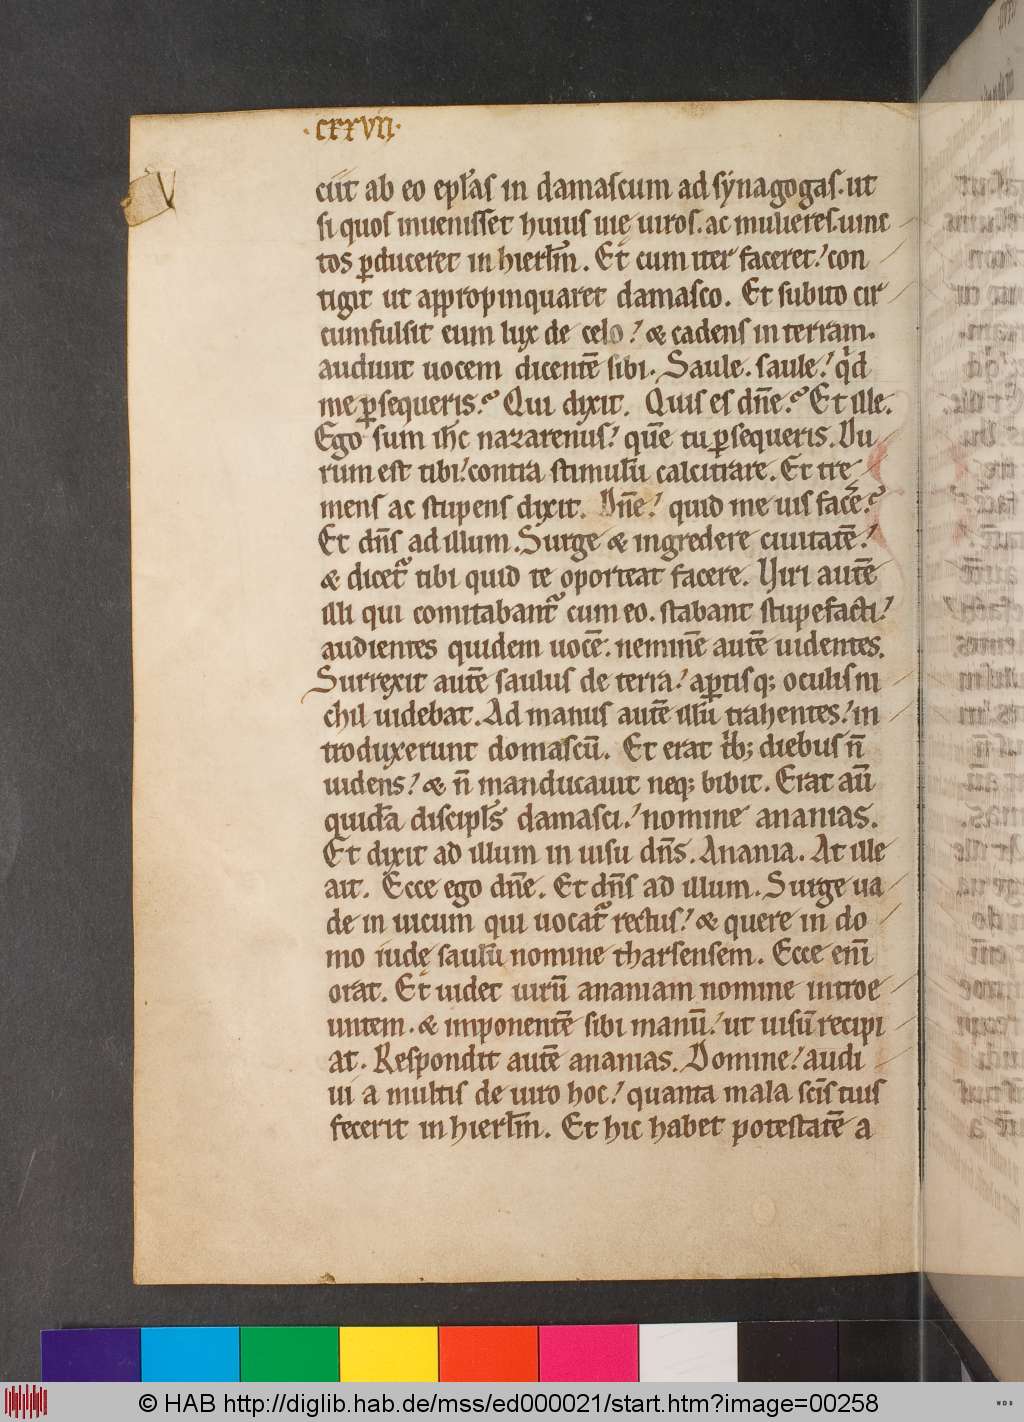 ·CXXVII·
ciit ab eo epl̅as in damascum ad synagogas. ut
si quos inuenisset huius uię uiros. ac mulieres. uinc
tos ꝑduceret in hierl̅m. Et cum iter faceret! con
tigit ut appropinquaret damasco. Et subito cir
cumfulsit eum lux de celo! & cadens in terram.
audiuit uocem dicentē sibi. Saule. saule! qͥd
me ꝑsequeris? Qui dixit. Quis es dn̅e? Et ille.
Ego sum ih̅c nazarenus! quē tu ꝑsequeris. Du
rum est tibi! contra stimulū calcitrare. Et tre
mens ac stupens dixit. Dn̅e! quid me uis facē?
Et dn̅s ad illum. Surge & ingredere ciuitatē!
& dicet᷑ tibi quid te oporteat facere. Uiri autē
illi qui comitabant᷑ cum eo. stabant stupefacti!
audientes quidem uocē. neminē autē uidentes.
Surrexit autē saulus de terra! aꝑtisq; oculis ni
chil uidebat. Ad manus autē illū trahentes! in
troduxerunt domascū. Et erat tͥb; diebus n̅
uidens! & n̅ manducauit neq; bibit. Erat au̅
quidā discipl̅s damasci! nomine ananias.
Et dixit ad illum in uisu dn̅s. Anania. At ille
ait. Ecce ego dn̅e. Et dn̅s ad illum. Surge ua
de in uicum qui uocat᷑ rectus! & quere in do
mo iudę saulū nomine tharsensem. Ecce eni̅
orat. Et uidet uirū ananiam nomine introe
untem. & imponentē sibi manū! ut uisū recipi
at. Respondit autē ananias. Domine! audi
ui a multis de uiro hoc! quanta mala sc̅is tuis
fecerit in hierl̅m. Et hic habet potestatē a
© HAB http://diglib.hab.de/mss/ed000021/start.htm?image=00258